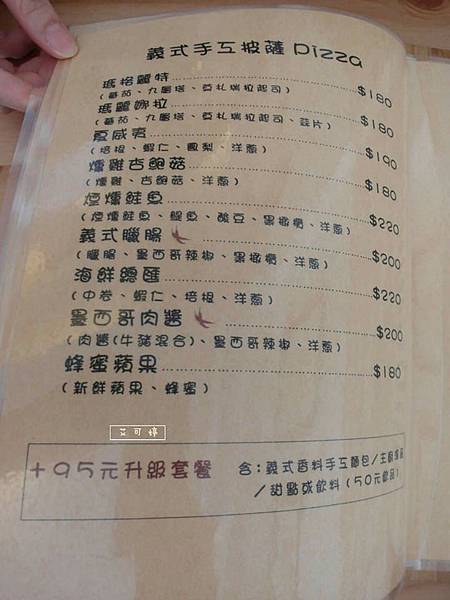 義式手工披薩 Pizza
瑪格麗特 $180
(蕃茄、九層塔、莫札瑞拉起司)
瑪麗娜拉 $180
(蕃茄、九層塔、莫札瑞拉起司、蒜片)
夏威夷 $190
(培根、蝦仁、鳳梨、洋蔥)
燻雞杏鮑菇 $180
(燻雞、杏鮑菇、洋蔥)
煙燻鮭魚 $220
(煙燻鮭魚、鯷魚、酸豆、黑橄欖、洋蔥)
義式臘腸 $200
(臘腸、墨西哥辣椒、黑橄欖、洋蔥)
海鮮總匯 $220
(中卷、蝦仁、培根、洋蔥)
墨西哥肉醬 $200
(肉醬(牛豬混合)、墨西哥辣椒、洋蔥)
蜂蜜蘋果 $180
(新鮮蘋果、蜂蜜)
艾可婷
+95元升級套餐 含:義式香料手工麵包/主廚
/甜點或飲料(50元飲品)